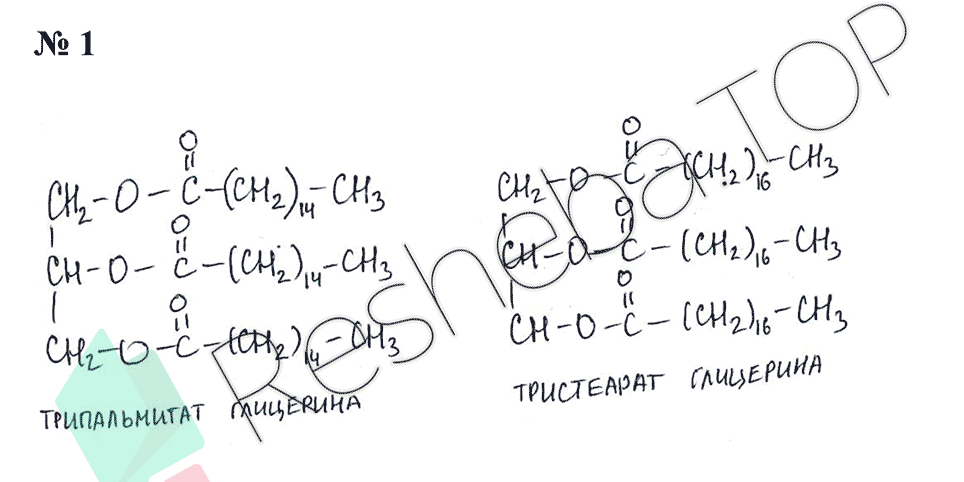 № 1
O
||
CH₂-O-C-(CH₂)₁₄-CH₃
|
O
||
CH-O-C-(CH₂)₁₄-CH₃
|
O
||
CH₂-O-C-(CH₂)₁₄-CH₃
ТРИПАЛЬМИТАТ ГЛИЦЕРИНА
O
||
CH₂-O-C-(CH₂)₁₆-CH₃
|
O
||
CH-O-C-(CH₂)₁₆-CH₃
|
O
||
CH-O-C-(CH₂)₁₆-CH₃
ТРИСТЕАРАТ ГЛИЦЕРИНА
Resheba TOP